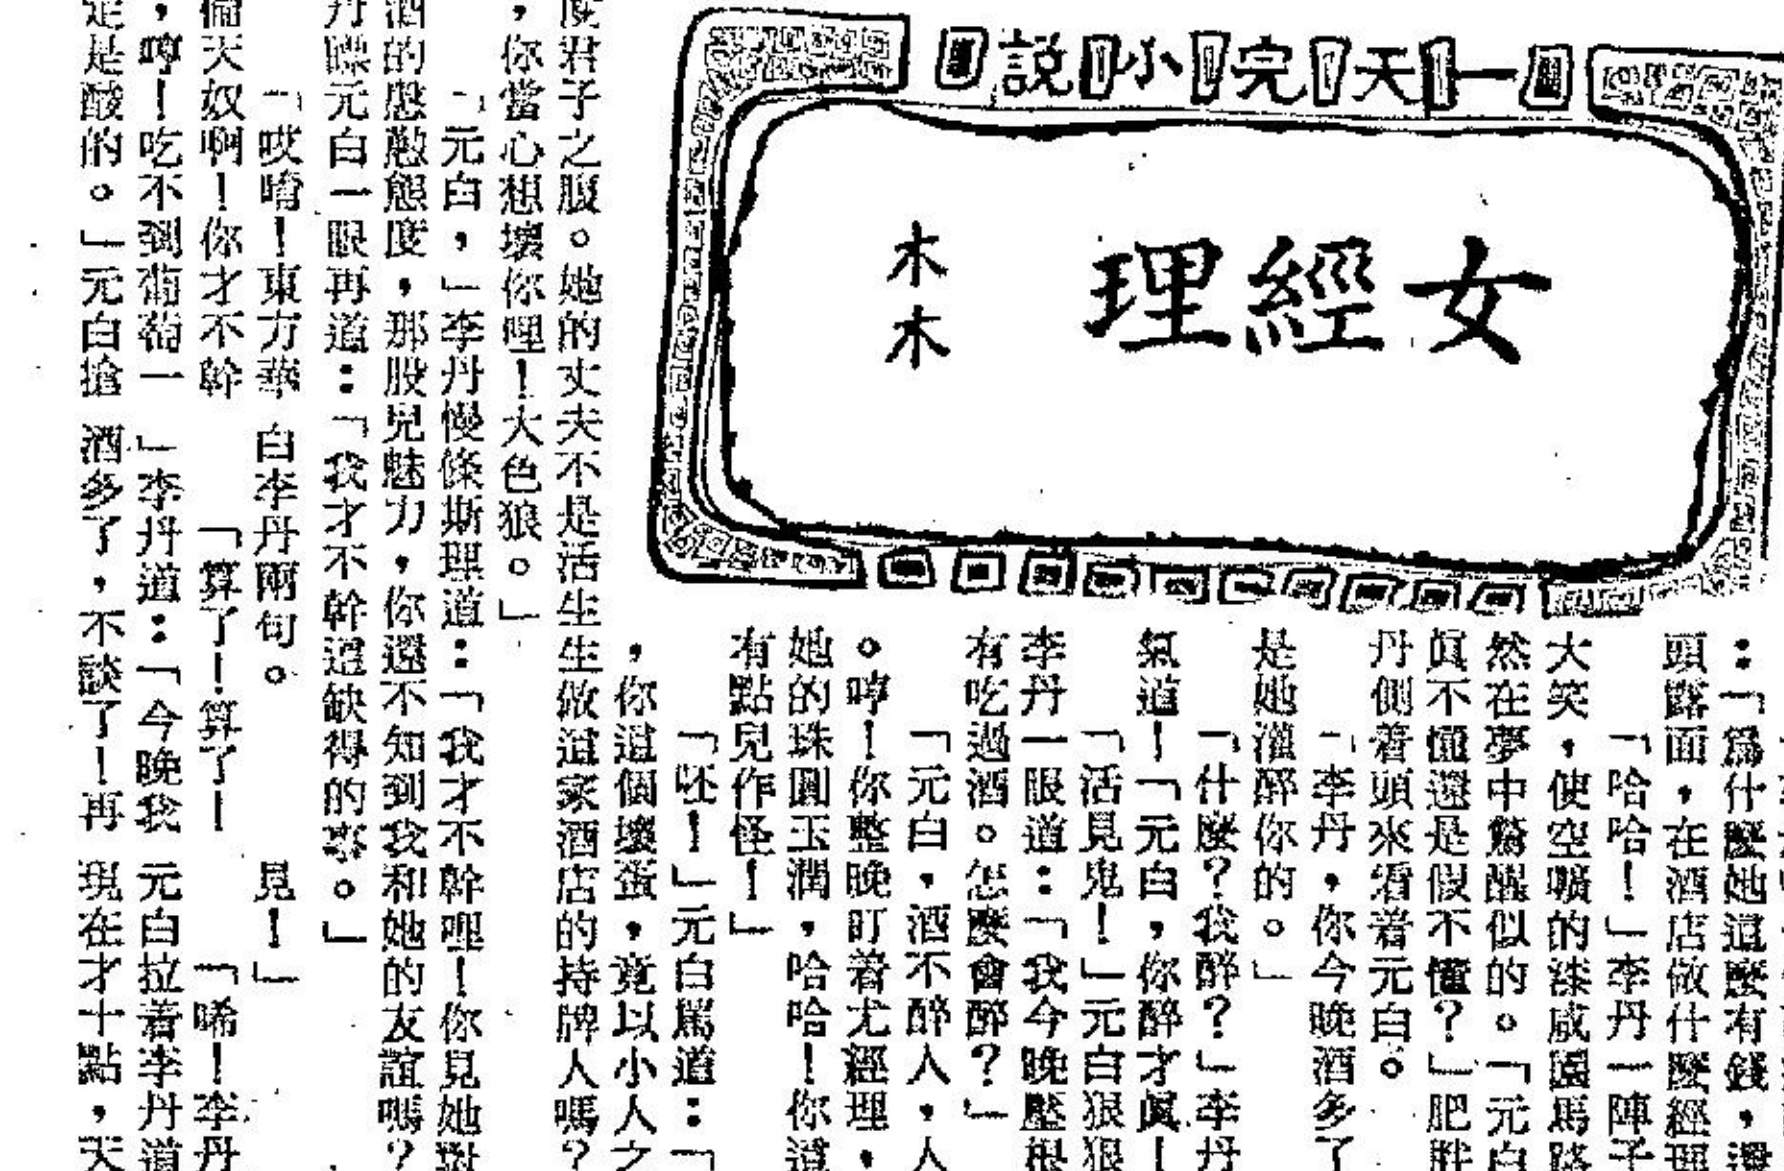 一天完小説
女經理
木木
：「爲什麼她這麼有錢，還
頭露面，在酒店做什麼經理
「哈哈！」李丹一陣子
大笑，使空曠的漆咸圍馬路
然在夢中驚醒似的。「元白
眞不懂還是假不懂？」肥胖
丹側着頭來看着元白。
「李丹，你今晚酒多了
是她灌醉你的。」
「什麼？我醉？」李丹
氣道！「元白，你醉才眞！
「活見鬼！」元白狠狠
李丹一眼道：「我今晚壓根
有吃過酒。怎麼會醉？」
「元白，酒不醉人，人
。哼！你整晚盯着尤經理，
她的珠圓玉潤，哈哈！你道
有點兒作怪！」
「呸！」元白罵道：「
，你這個壞蛋，竟以小人之
度君子之腹。她的丈夫不是活生生做這家酒店的持牌人嗎？
，你當心想壞你哩！大色狼。」
「元白，」李丹慢條斯理道：「我才不幹哩！你見她對
酒的慇懃態度，那股兒魅力，你還不知到我和她的友誼嗎？
丹睬元白一眼再道：「我才不幹這缺得的事。」
「哎唷！東方華
天奴啊！你才不幹
，哼！吃不到葡萄一
定是酸的。」元白搶
白李丹兩句。
「算了！算了！
」李丹道：「今晚我
酒多了，不談了！再
見！」
「唏！李丹
元白拉着李丹道
現在才十點，天